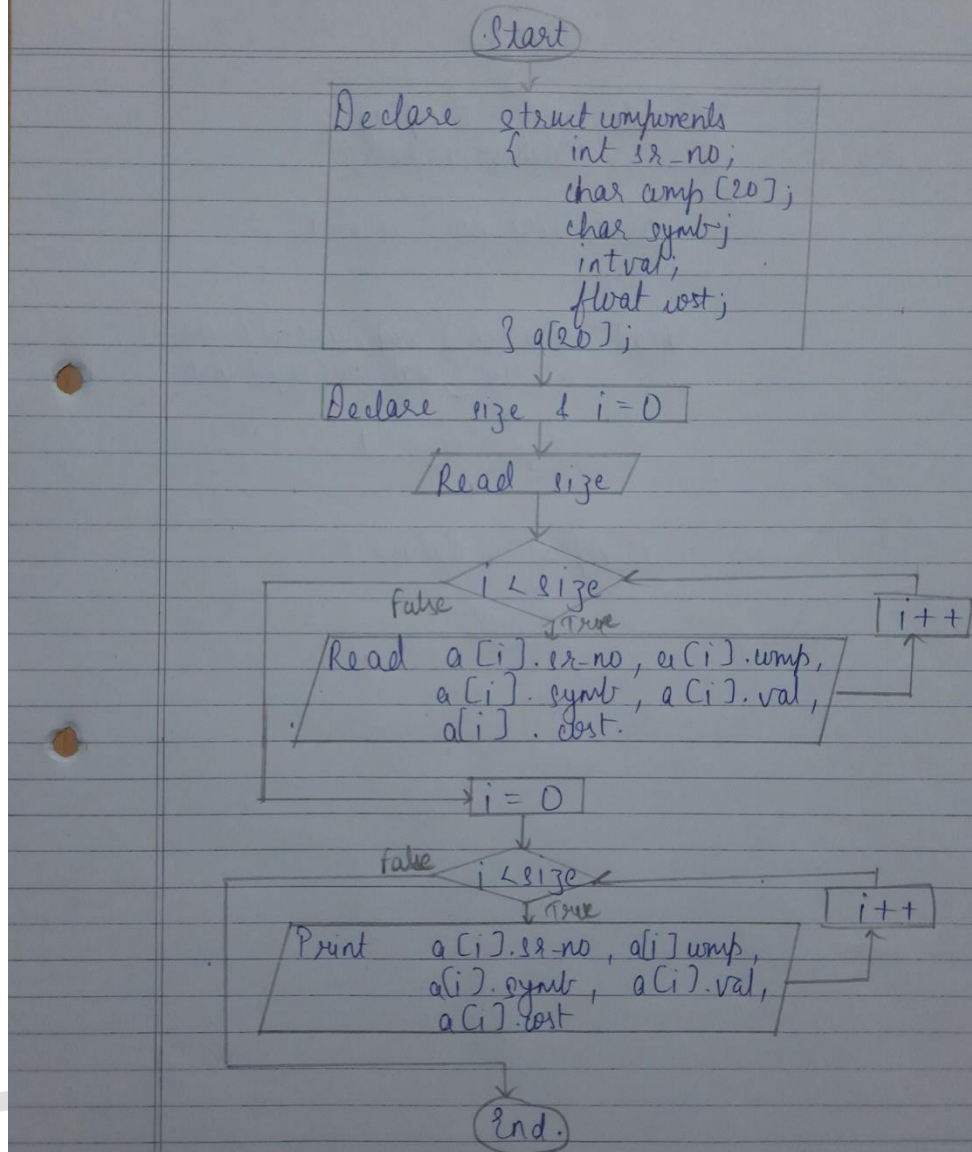 Start
Declare struct components
{ int sr-no;
char comp [20];
char symb;
int val;
float cost;
} a[20];
Declare size & i = 0
Read size
i < size
False
True
i++
Read a[i].sr-no, a[i].comp,
a[i].symb, a[i].val,
a[i].cost.
i = 0
False
i < size
True
i++
Print a[i].sr-no, a[i] comp,
a[i].symb, a[i].val,
a[i].cost
End.